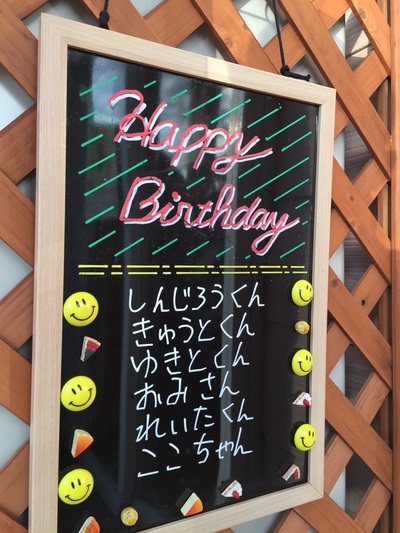 Happy
Birthday
しんじろうくん
きゅうとくん
ゆきとくん
おみさん
れいたくん
ここちゃん